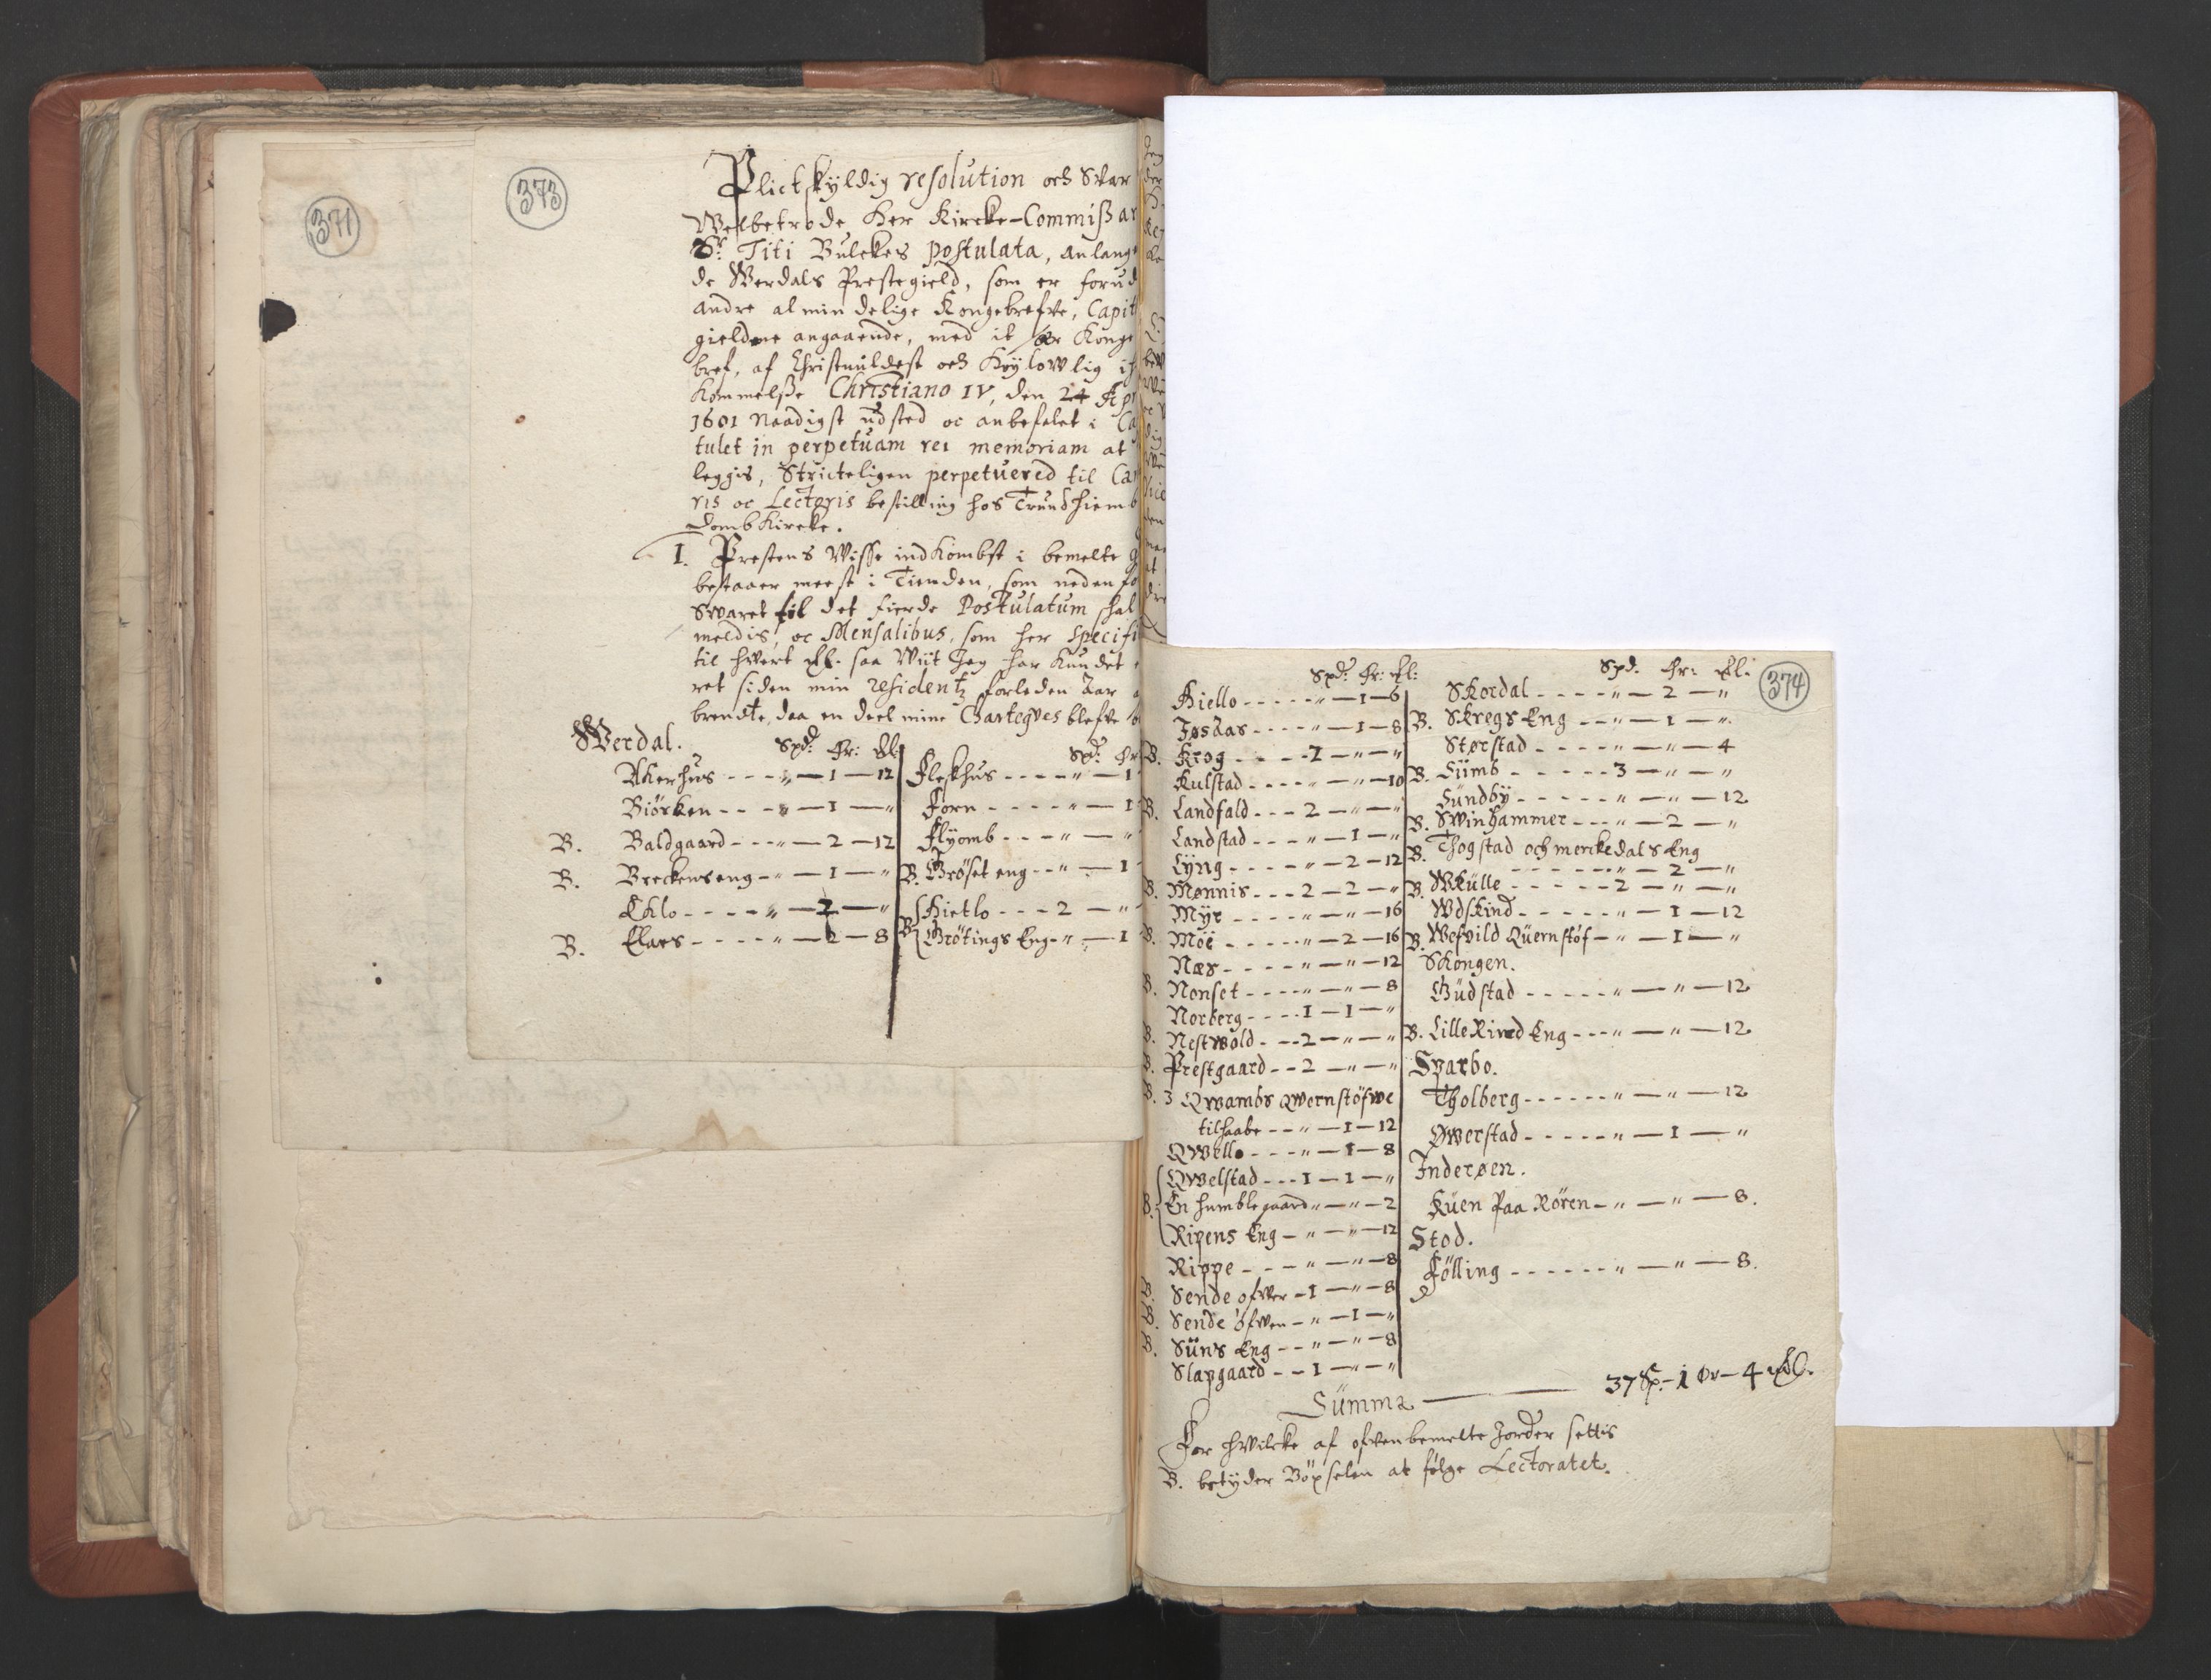 371
373
Plictskyldig resolution och Svar
Welbetrode Her Kircke-Commißar
Sr. Titi Bulckes postulata, anlang
de Werdals Prestegield, som er forud
andre almindelige Kongebrefve, Capit
gieldene angaaende, med it Konge
bref, af Christmildest och Höylowlig
Kommelße Christiano IV, den 24 Apr
1601 Naadigst udsted oc anbefalet i Ca
tulet in perpetuam rei memoriam at
leggis, Stricteligen perpetuered til Ca
ris oc Lectoris bestilling hos Trundhiemb
Domb Kircke.
I. Prestens Wisse indkombst i bemelte
bestaaer meest i Tienden, som neden fo
Svaret til det fierde Postulatum shal
meldis, oc Mensalibus, som her specifi
til hvert saa Wiit Jeg har kundet
ret siden min residentz forleden Aar
brendte, daa en deel mine Charteqves blefve
Werdal. Spd: Ør: Ml:
Akerhus - - - „ — 1 — 12
Biörken - - - „ — 1 — „
B. Baldgaard - - - „ — 2 — 12
B. Breckens eng - „ — 1 — „
Eklo - - - - „ — 2 — „
B. Elnes - - - - „ — 2 — 8
Spd: Ør
Fleskhus - - - - „ — 1
Forn - - - - - „ — 1
Flyomb - - - „ — „
B. Brøset eng - - „ — 1
B. Hietlo - - - 2 — „
Grötings Eng - „ — 1
374
Spd: Ør: Ml:
Hiello - - - - - „ — 1 — 6
Jøsaas - - - - „ — 1 — 8
B. Krog - - - - 2 — „ — „
Kulstad - - - - „ — „ — 10
B. Landfald - - - 2 — „ — „
Landstad - - - „ — 1 — „
Lyng - - - - „ — 2 — 12
B. Mønnis - - - 2 — 2 — „
Myr - - - - „ — „ — 16
B. Möe - - - - - „ — 2 — 16
Næs - - - - „ — „ — 12
B. Nonset - - - - „ — „ — 8
Norberg - - - - 1 — 1 — „
B. Nestwold - - - 2 — „ — „
B. Prestgaard - - 2 — „ — „
B. 3 Qwambs qwernstöfwe
tilhaabe - - „ — 1 — 12
Qwello - - - „ — 1 — 8
Qwelstad - - - 1 — 1 — „
B. En humblegaard „ — „ — 2
Ripens Eng - „ — „ — 12
Rippe - - - „ — „ — 8
B. Sende ofver - 1 — „ — 8
B. Sende öfven - „ — 1 — „
B. Süns Eng - - „ — „ — 8
Slapgaard - - 1 — „ — „
Spd. Ør: Ml.
Skordal - - - - „ — 2 — „
B. Skregs Eng - - „ — 1 — „
Størstad - - - - „ — „ — 4
B. Sümb - - - - - 3 — „ — „
Sündby - - - - - „ — „ — 12
B. Swinhammer - - - „ — 2 — „
B. Thogstad och merckedals Eng
- - - - - - - „ — 2 — „
B. Wkülle - - - - - 2 — „ — „
Wdskind - - - - - „ — 1 — 12
B. Wefvild Qüernstöf - „ — 1 — „
Skongen.
Güdstad - - - - - „ — „ — 12
B. Lille Rined Eng - - - „ — „ — 12
Sparbo.
Tholberg - - - - - - „ — „ — 12
Øwerstad - - - - - „ — 1 — „
Inderøen.
Küen paa Rören - „ — „ — 8.
Stod.
Fölling - - - - - - „ — „ — 8.
Summa — 37 Sp. - 1 Ør - 4 Ml.
For hvilcke af ofvenbemelte Jorder settis
B. betyder Böxselen at følge Lectoratet.